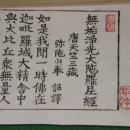 無垢淨光大陁羅尼經
唐天竺三藏
弥陁山奉 詔譯
如是我聞一時佛在
迦毗羅城大精舍中
與大比丘衆無量人